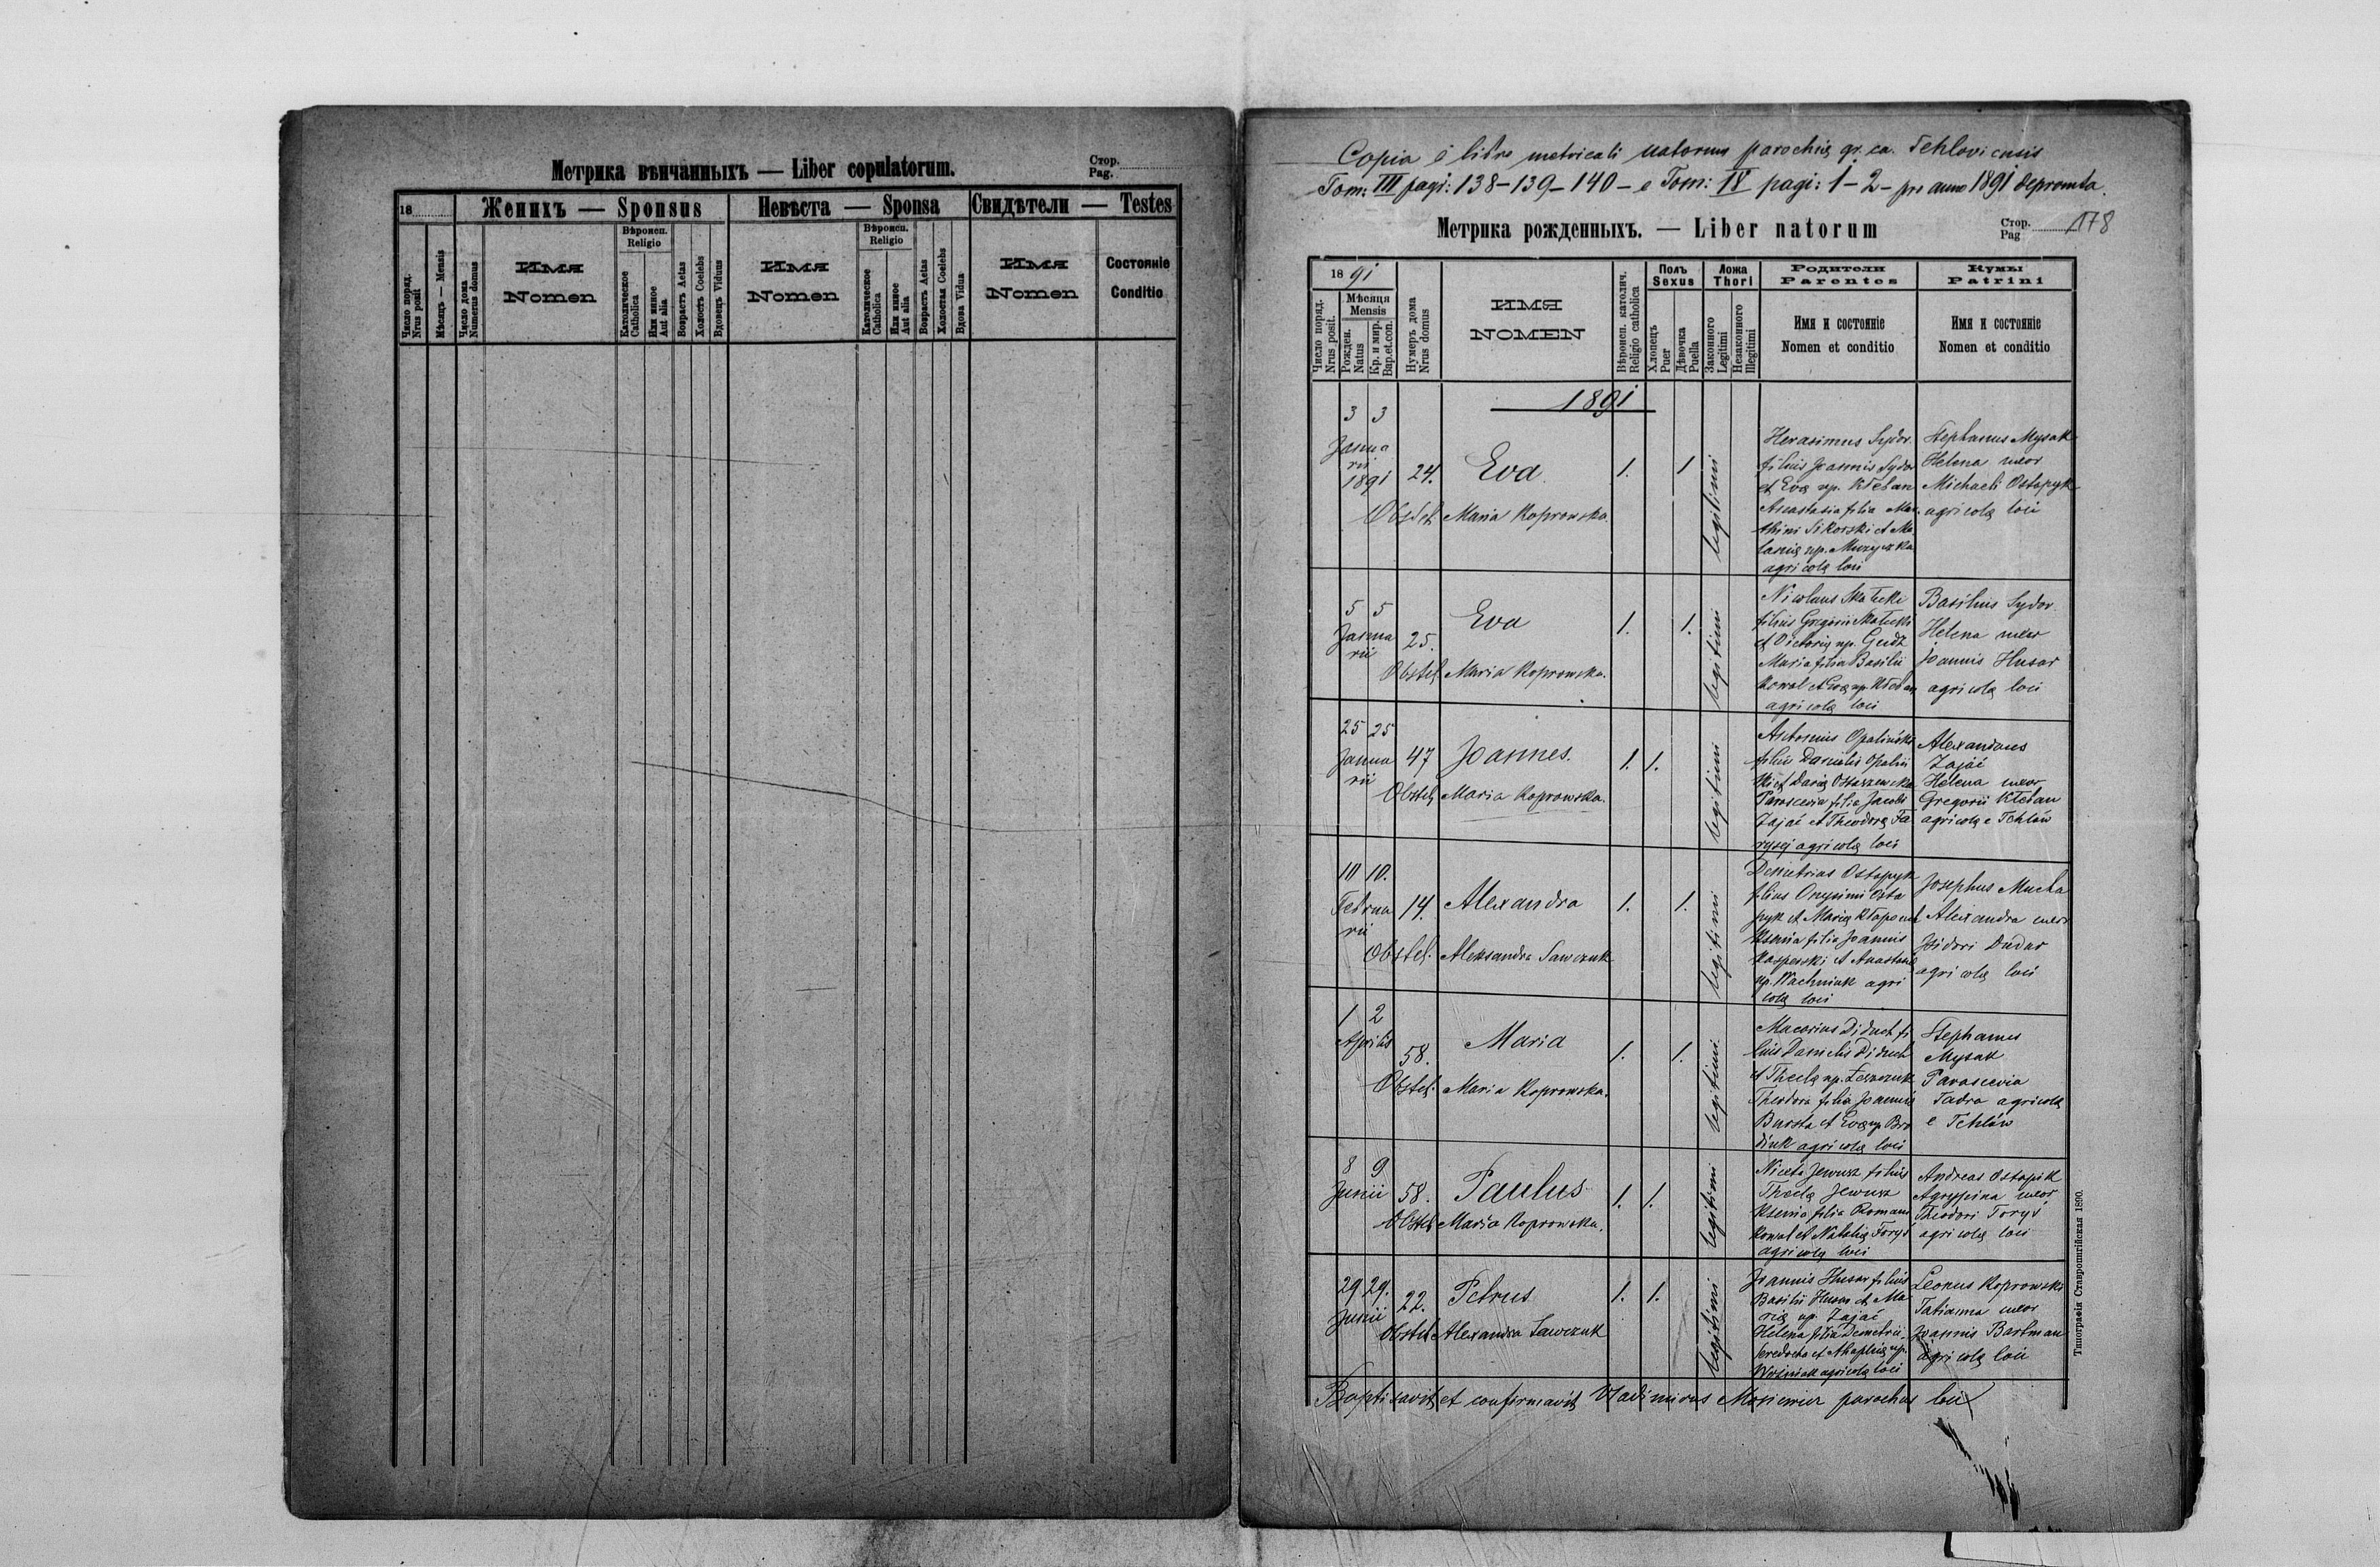 Метрика вѣнчанныхъ — Liber copulatorum.
Стор.
Pag.
18
Женихъ — Sponsus
Невѣста — Sponsa
Свидѣтели — Testes
Число поряд.
Nrus posit
Мѣсяцъ — Mensis
Число дома
Numerus domus
Имя
Nomen
Вѣроисп.
Religio
Католическое
Catholica
Или иное
Aut alia
Возрастъ Aetas
Холостъ Coelebs
Вдовецъ Viduus
Имя
Nomen
Вѣроисп.
Religio
Католическое
Catholica
Или иное
Aut alia
Возрастъ Aetas
Холостая Coelebs
Вдова Vidua
Имя
Nomen
Состояніе
Conditio
Copia e libro metricali natorum parochię gr. ca. Tehlovicensis
Tom: III pagi: 138-139-140 - e Tom: IV pagi: 1-2 - pro anno 1891 deprомta.
Метрика рожденныхъ. — Liber natorum
Стор.
Pag
178
1891
Число поряд.
Nrus posit.
Мѣсяця
Mensis
Рожден.
Natus
Кр. и мир.
Bap.et.con.
Нумеръ дома
Nrus domus
ИМЯ
NOMEN
Вѣроисп. католич.
Religio catholica
Полъ
Sexus
Хлопецъ
Puer
Дѣвочка
Puella
Ложа
Thori
Законного
Legitimi
Незаконного
Illegitimi
Родители
Parentes
Имя и состояніе
Nomen et conditio
Кумы
Patrini
Имя и состояніе
Nomen et conditio
1891
3 3
Janua
rii
1891
24.
Eva
1. 1
legitimi
Obstet. Maria Koprowska.
Herasimus Sydor.
filius Joannis Sydor
et Evę np. Kleban
Anastasia filia Mat
thini Sikorski et Me
lanię np. Muzyczka
agricolę loci
Stephanus Mysak
Helena uxor
Michaeli Ostapyk
agricolę loci
5 5
Janua
rii
25.
Eva
1. 1.
legitimi
Obstet. Maria Koprowska.
Nicolaus Skalecki
filius Gregorii Skalecki
et Victorię np. Gudz
Maria filia Basilii
Kowal et Evę np. Kleban
agricolę loci
Basilius Sydor.
Helena uxor
Joannis Husar
agricolę loci
25 25
Janua
rii
47
Joannes.
1. 1.
legitimi
Obstet. Maria Koprowska.
Antonius Opaliński
filius Danielis Opaliń
ski et Darię Ostaszewska
Parascevia filia Jacobi
Zając et Theodorę Fa
ryęj agricolę loci
Alexandrus
Zając
Helena uxor
Gregorii Kleban
agricolę e Tehlów
10 10.
Februa
rii
14.
Alexandra
1. 1.
legitimi
Obstet. Aleksandra Sawczuk
Demetrius Ostapyk
filius Onysimi Osta
pyk et Marię
Ksenia filia Joannis
Kasperski et Anastasię
np. Wachniuk agri
colę loci
Josephus Mucha
Alexandra uxor
Isidori Dudar
agricolę loci
1 2
Aprilis
58.
Maria
1. 1.
legitimi.
Obstet. Maria Koprowska.
Macarius Diduch fi
lius Danielis Diduch
et Theclę np. Leszczuk
Theodora filia Joannis
Bursta et Evę np. Bro
diuk agricolę loci
Stephanus
Mysak
Parascevia
Fadra agricolę
e Tehlów
8 9
Junii
58.
Paulus
1. 1.
legitimi
Obstet. Maria Koprowska.
Niceta Jewusz filius
Theclę Jewusz
Ksenia filia Romani
Kowal et Natalię Foryś
agricolę loci
Andreas Ostapik
Agrippina uxor
Theodori Foryś
agricolę loci
29 29.
Junii
22.
Petrus
1. 1.
legitimi
Obstet. Alexandra Sawczuk
Joannis Husar filius
Basilii Husar et Ma
rię np. Zając
Helena filia Demetrii
Seredocha et Ahaphię np.
Woźniak agricolę loci
Leonus Koprowski
Tatianna uxor
Joannis Bartman
agricolę loci
Baptisavit et confirmavit Vladimirus Mosiewicz parochus loci
Типографія Ставропигійская 1890.